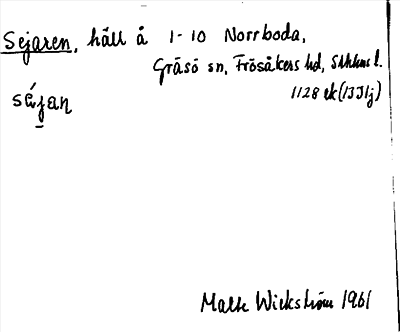 Sejaren, häll å 1-10 Norrboda,
Gräsö sn, Frösåkers hd, Sthlms l.
1128 ek (13I1j)
séjan
Malte Wickström 1961